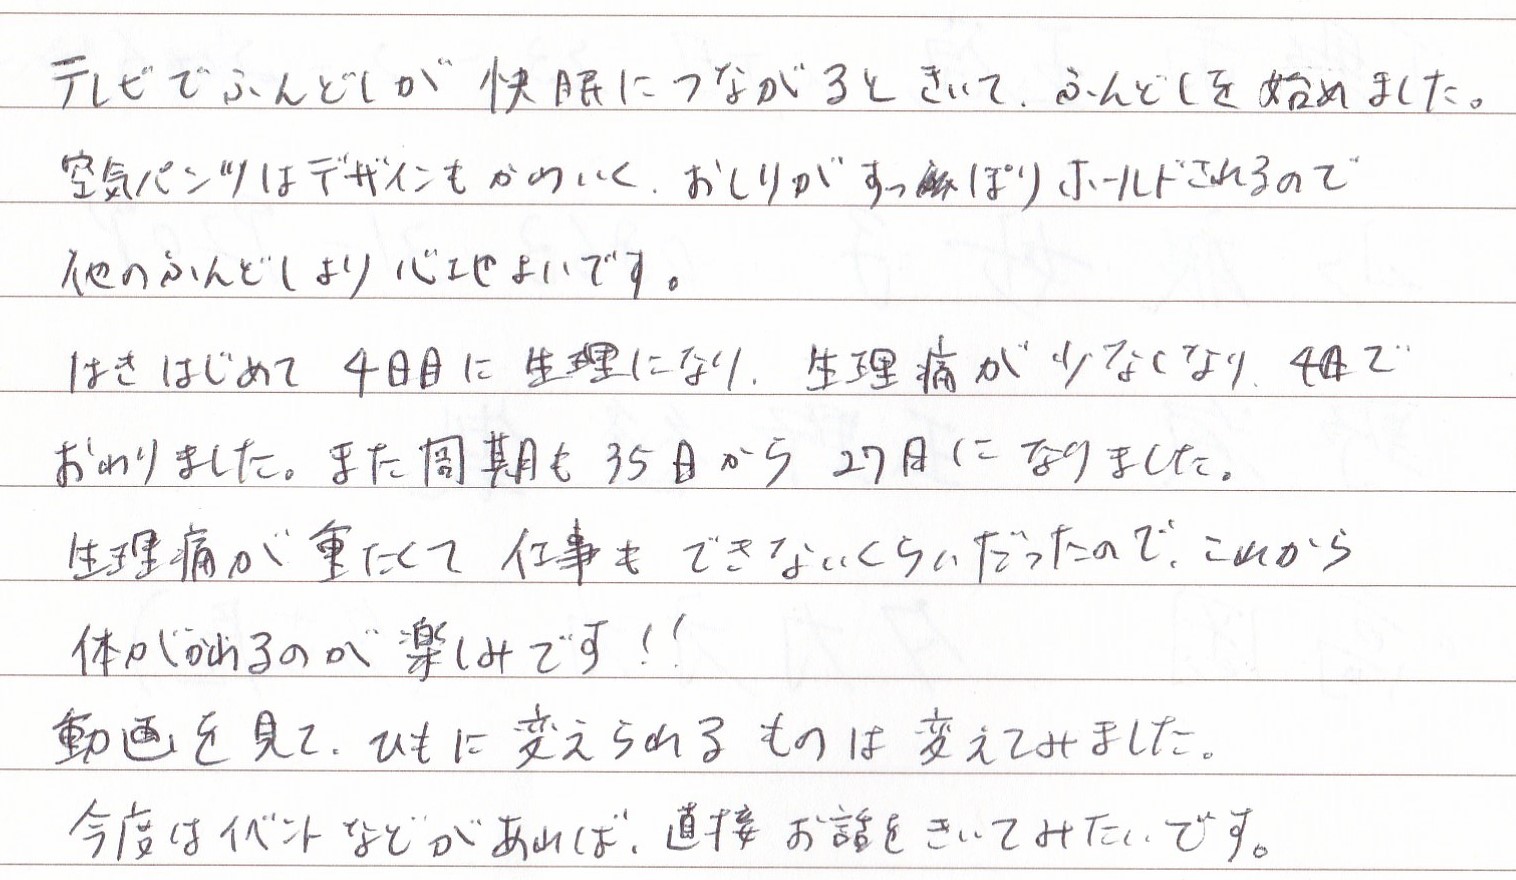 テレビでふんどしが快眠につながるときいて、ふんどしを始めました。
空気パンツはデザインもかわいく、おしりがすっぽりホールドされるので
他のふんどしより心地よいです。
はきはじめて4日目に生理になり、生理痛が少なくなり、4日で
おわりました。また周期も35日から27日になりました。
生理痛が重たくて仕事もできないくらいだったので、これから
体がかわるのが楽しみです!!
動画を見て、ひもに変えられるものは変えてみました。
今度はイベントなどがあれば、直接お話をきいてみたいです。